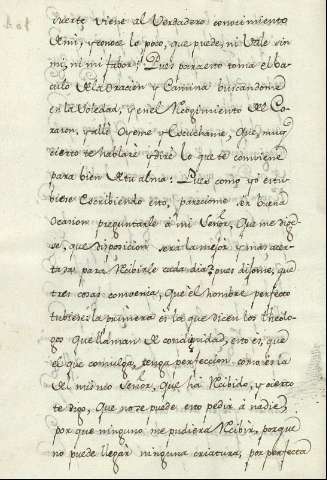 suerte viene al verdadero conocimiento
de mi, y conoce lo poco, que puede, ni vale sin
mi, ni mi fabor: Pues para esto toma el ba
culo de la oracion y Camina buscandome
en la Soledad, y en el Recogimiento del Co
razon, y alli Oyeme y Escuchame, que muy
cierto te hablare y dire lo que te conviene
para bien de tu alma: Pues como yo estu
biese Escribiendo esto, pareciome ser buena
Ocasion preguntarle a mi Señor, Que me dige
se, que disposicion será la mejor y mas acer
tada para Recibirle cada dia? pues dijome, que
tres cosas convenia, Que el hombre perfecto
tubiese: la primera es la que dicen los theolo
gos que llaman de condignidad, esto es, que
el que comulga, tenga perfeccion como es la
del mismo Señor, Que ha Recibido, y cierto
te digo, Que no se puede esto pedir a nadie,
por que ninguno me pudiera Recibir, porque
no puede llegar ninguna criatura, por perfecta